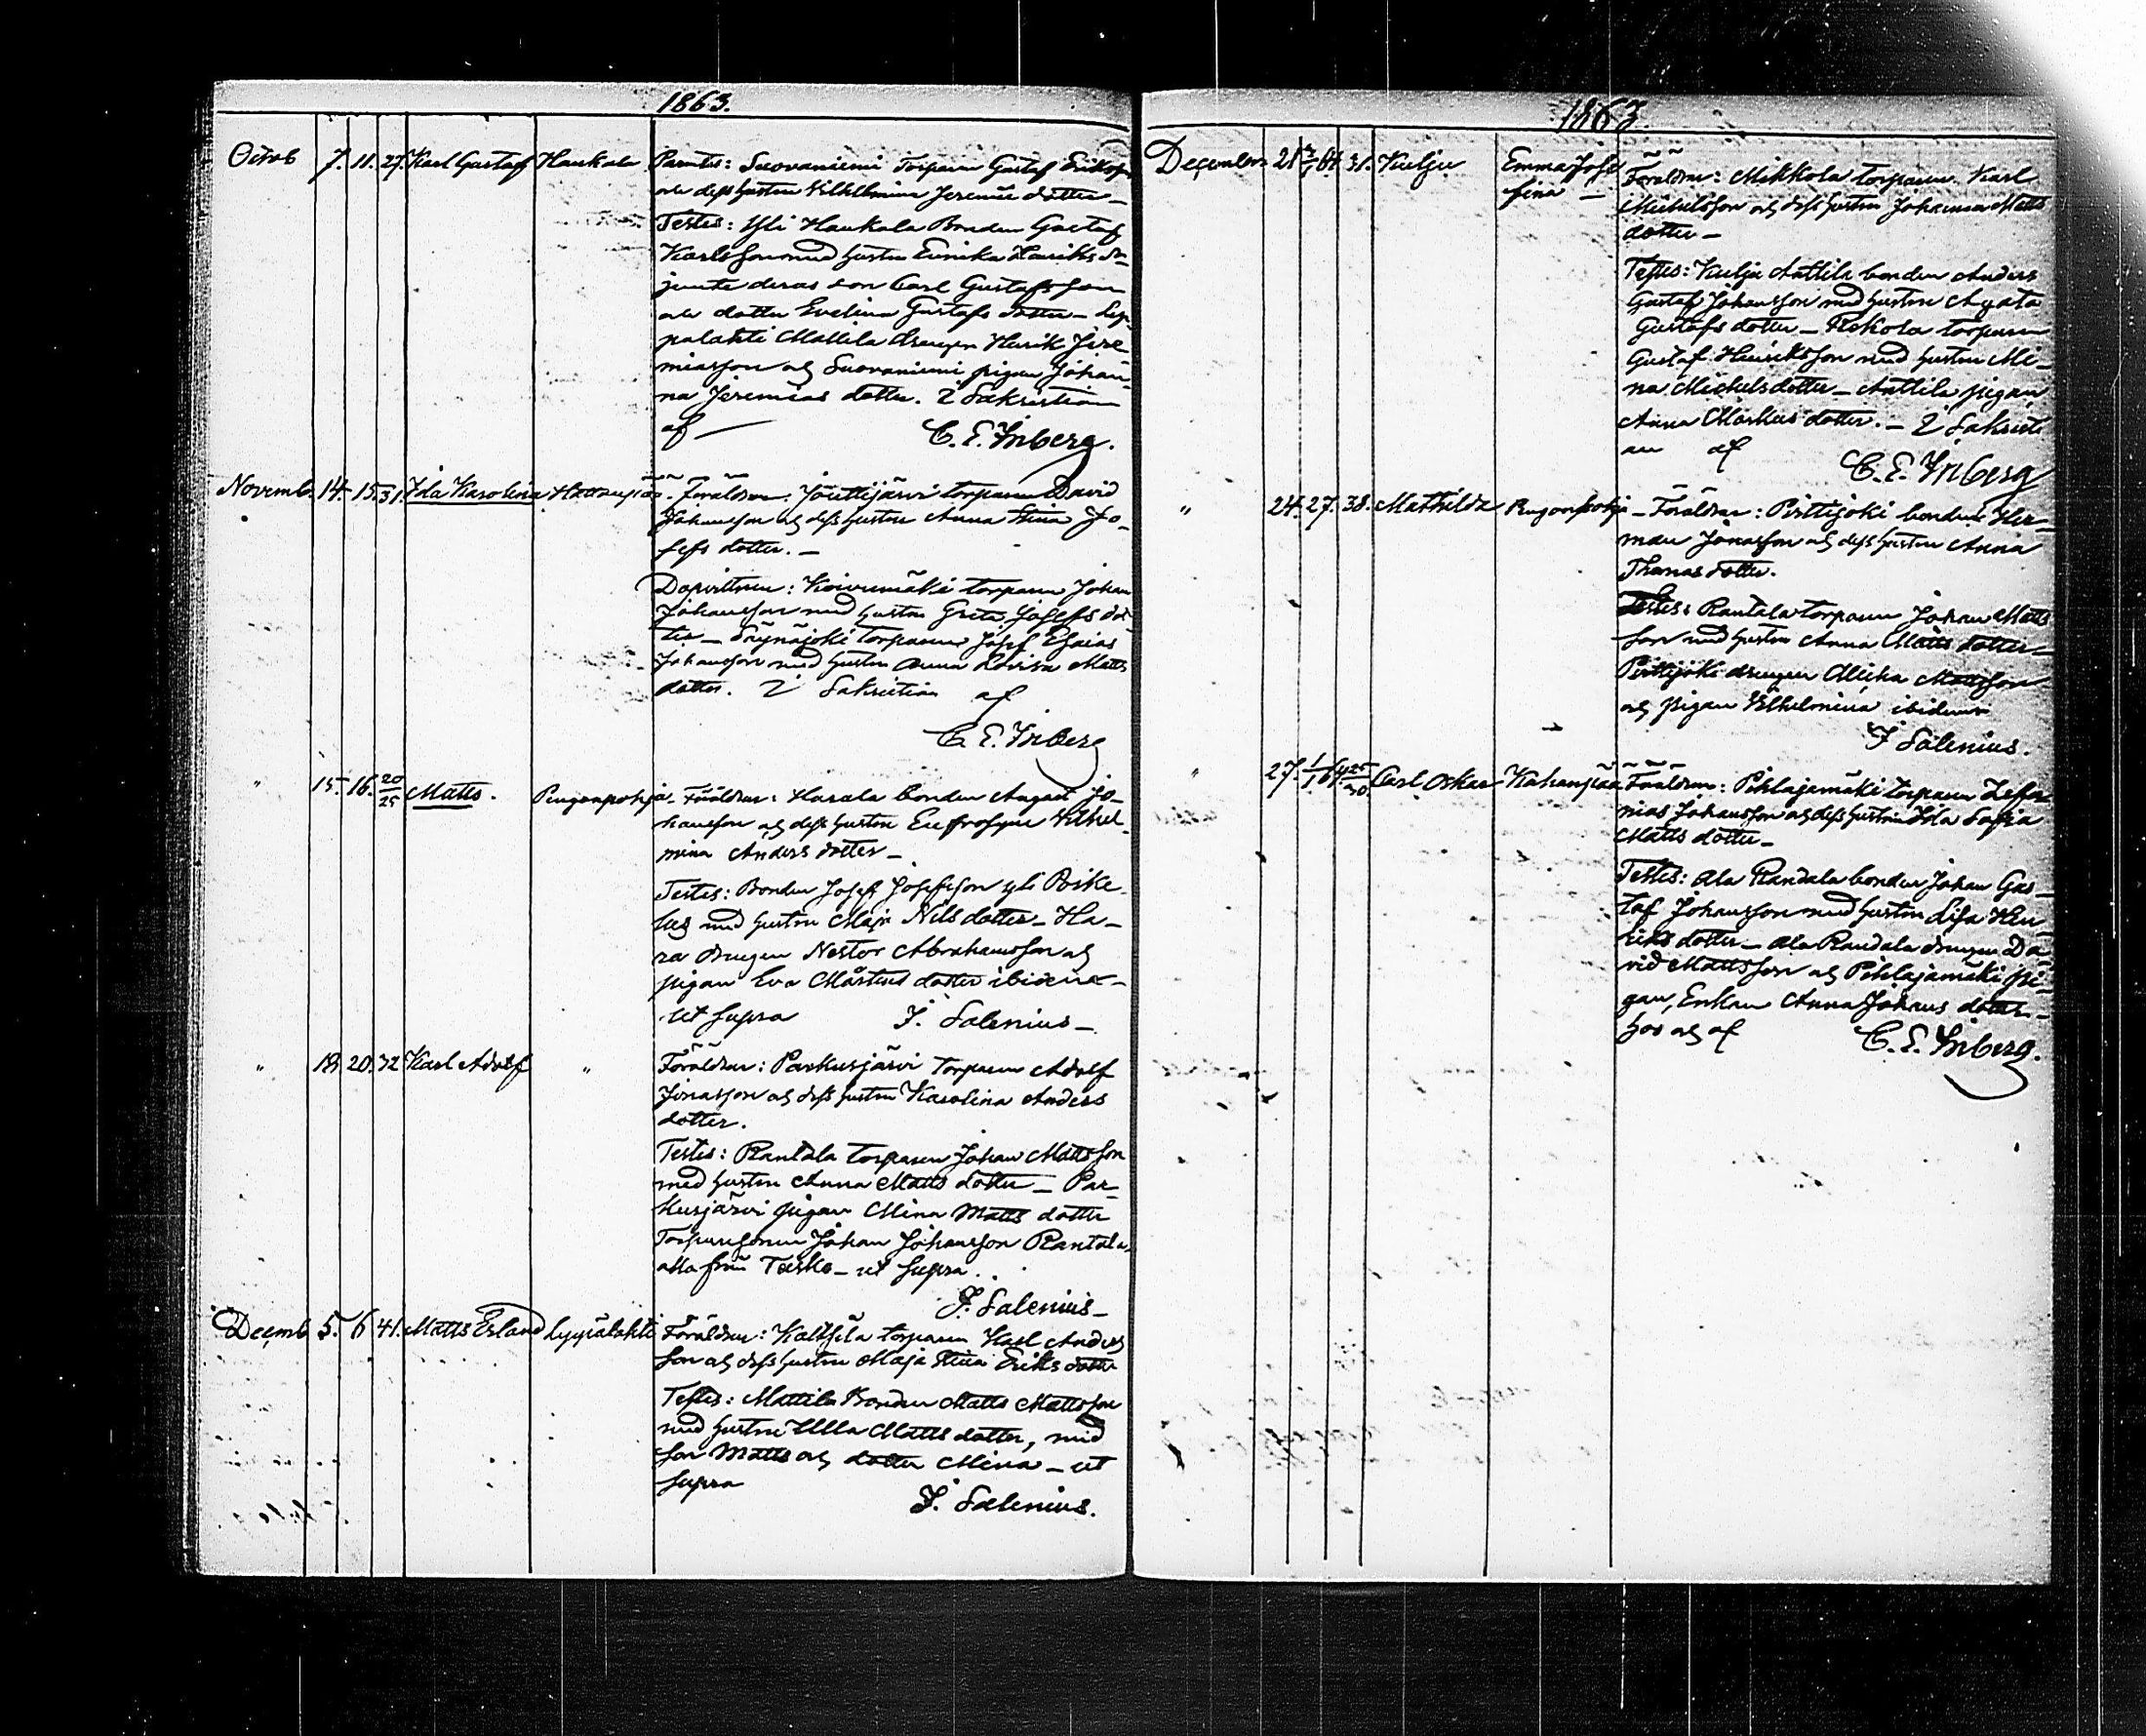 1863.
Octob 7. 11. 27. Karl Gustaf Haukala Parentes: Suovaniemi Torparen Gustaf Eriksson
och dess hustru Vilhelmina Jeremie dotter –
Testes: Yli Haukala Bonden Gustaf
Karlsson med hustru Eerika Henriks d
jemte deras son Carl Gustafsson
och dotter Evelina Gustafs dotter – Lep
palahti Mattila drengen Henrik Jere
miasson och Suovaniemi pigan Johan
na Jeremias dotter. I Sakristian
af — C. E. Inberg.
Novemb. 14. 15. 31. Ida Karolina Föräldrar: Jouttijärvi torparen David
Johansson och dess hustru Anna Stina Jo
sefs dotter. –
Dopvittnen: Koivumäki torparen Johan
Johansson med hustru Greta Josefs dot
ter – Säynäjoki torparen Josef Esaias
Johansson med hustru Anna Lovisa Matts
dotter. I Sakristian af
C. E. Inberg
" 15. 16. 20/25 Matts. Pengonpohja. Föräldrar: Harala bonden August Jo
hansson och dess hustru Eufrosyne Vilhel
mina Anders dotter –
Testes: Bonden Josef Josefsson yli
med hustru Maja Nils dotter – Ha
ra drengen Nestor Abrahamsson och
pigan Eva Mårtens dotter ibidem –
ut supra J. Salenius –
" 18. 20. 32 Karl Adolf " Föräldrar: Parkusjärvi torparen Adolf
Jonasson och dess hustru Karolina Anders
dotter.
Testes: Rantala torparen Johan Mattsson
med hustru Anna Matts dotter – Par
kusjärvi pigan Mina Matts dotter
Torparesonen Johan Johansson Rantala
alla från Teisko – ut supra.
J. Salenius –
Decemb 5. 6 41. Matts Erland Lyyjälahti Föräldrar: Kalthila torparen Karl Anders
son och dess hustru Maja Stina Eriks dotter
Testes: Mattila Bonden Matts Mattsson
med hustru Ulla Matts dotter, med
son Matts och dotter Mina – ut
supra
J. Salenius.
1863.
December 31. Kulju Emma Jose
fina – Föräldrar: Mikkola torparen Karl
Michelsson och dess hustru Johanna Matts
dotter –
Testes: Kulju Anttila bonden Anders
Gustaf Johansson med hustru Agata
Gustafs dotter – torparen
Gustaf Henriksson med hustru Mi
na Michelsdotter – Anttila pigan
Anna Markus dotter. – I Sakristi
an af
C. E. Inberg
" 24. 27. 38. Mathilda Pengonpohja – Föräldrar: Pirttijoki bonden Her
man Jonasson och dess hustru Anna
Thomas dotter.
Testes: Rantala torparen Johan Matts
son med hustru Anna Matts dotter –
Pirttijoki drengen Mattsson
och pigan Vilhelmina ibidem
J. Salenius.
" 27. 1/1 64. 25/30 Carl Oskar Kahanpää Föräldrar: Pihlajamäki torparen Zefa
nias Johansson och dess hustru Ida Sofia
Matts dotter –
Testes: Ala Randala bonden Johan Gus
taf Johansson med hustru Lisa Hen
riks dotter – Ala Randala drengen Da
vid Mattsson och Pihlajamäki pi
gan, Enkan Anna Johans dotter –
hos och af C. E. Inberg.